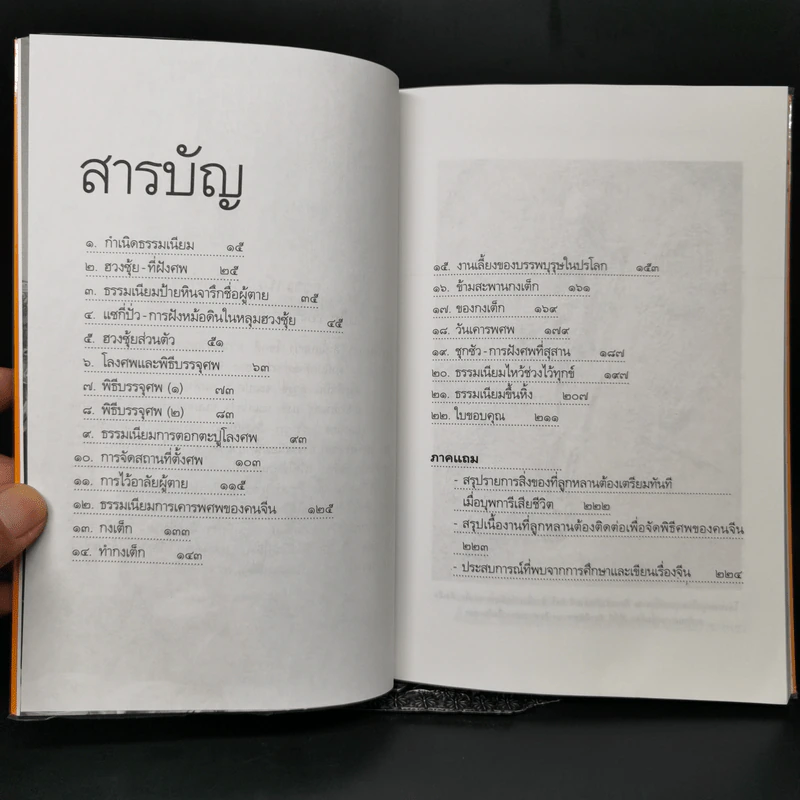 สารบัญ
๑. กำเนิดธรรมเนียม ๑๕
๒. ฮวงซุ้ย - ที่ฝังศพ ๒๕
๓. ธรรมเนียมป้ายหินจารึกชื่อผู้ตาย ๓๕
๔. แซกี่ปั่ว - การฝังหม้อดินในหลุมฮวงซุ้ย ๔๕
๕. ฮวงซุ้ยส่วนตัว ๕๑
๖. โลงศพและพิธีบรรจุศพ ๖๓
๗. พิธีบรรจุศพ (๑) ๗๓
๘. พิธีบรรจุศพ (๒) ๘๓
๙. ธรรมเนียมการตอกตะปูโลงศพ ๙๓
๑๐. การจัดสถานที่ตั้งศพ ๑๐๓
๑๑. การไว้อาลัยผู้ตาย ๑๑๕
๑๒. ธรรมเนียมการเคารพศพของคนจีน ๑๒๕
๑๓. กงเต็ก ๑๓๓
๑๔. ทำกงเต็ก ๑๔๓
๑๕. งานเลี้ยงของบรรพบุรุษในปรโลก ๑๕๓
๑๖. ข้ามสะพานกงเต็ก ๑๖๑
๑๗. ของกงเต็ก ๑๖๙
๑๘. วันเคารพศพ ๑๗๙
๑๙. ชุกซัว - การฝังศพที่สุสาน ๑๘๗
๒๐. ธรรมเนียมไหว้ช่วงไว้ทุกข์ ๑๙๗
๒๑. ธรรมเนียมขึ้นทิ้ง ๒๐๗
๒๒. ใบขอบคุณ ๒๑๑
ภาคแถม
- สรุปรายการสิ่งของที่ลูกหลานต้องเตรียมทันที
เมื่อบุพการีเสียชีวิต ๒๒๒
- สรุปเนื้องานที่ลูกหลานต้องติดต่อเพื่อจัดพิธีศพของคนจีน
๒๒๓
- ประสบการณ์ที่พบจากการศึกษาและเขียนเรื่องจีน ๒๒๔